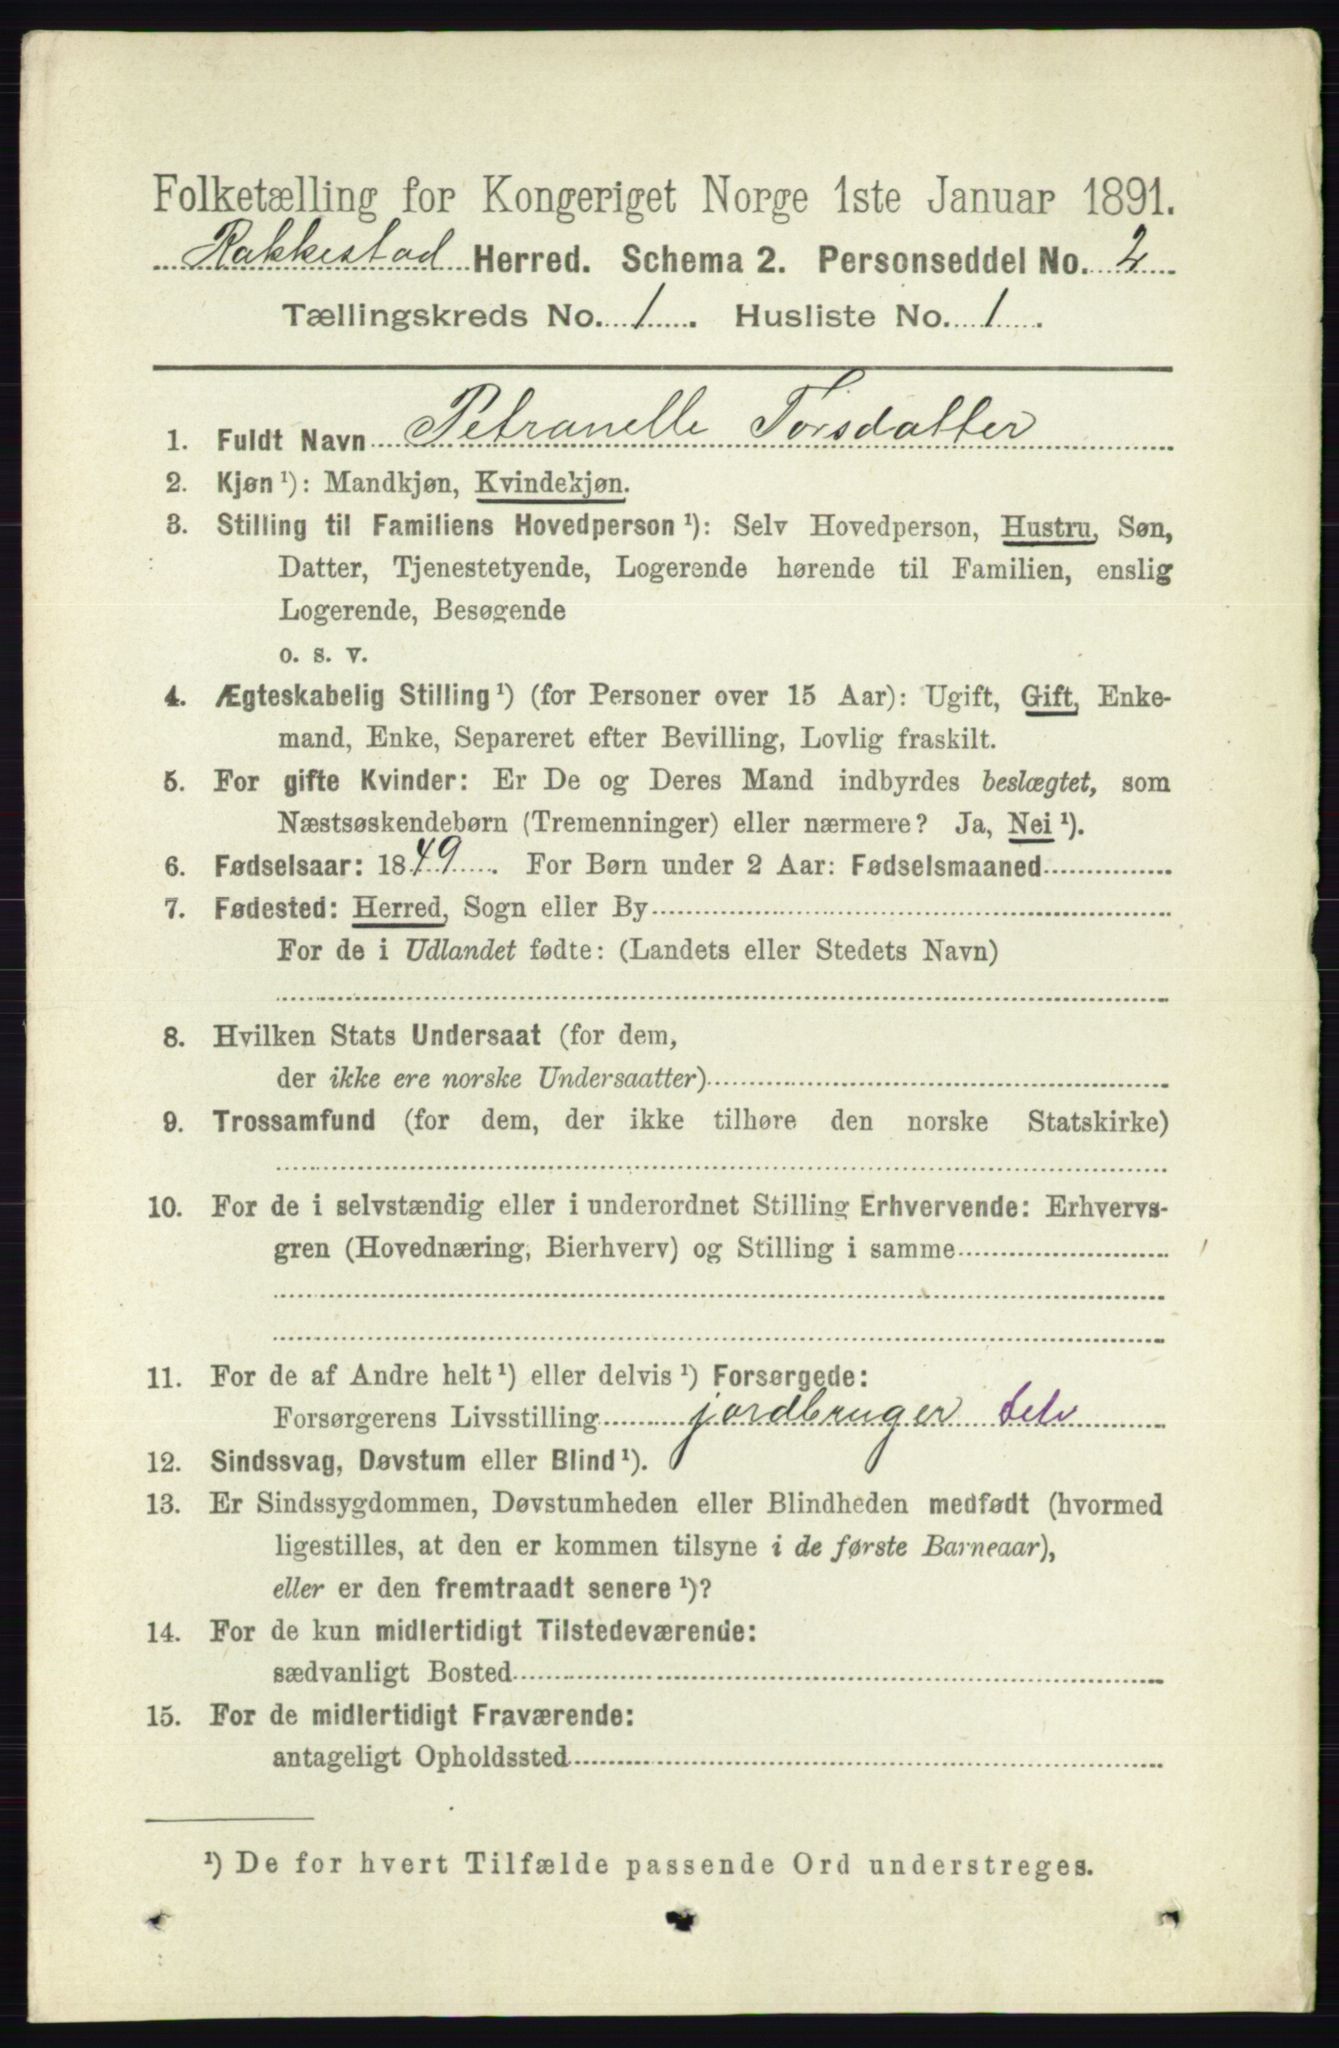 Folketælling for Kongeriget Norge 1ste Januar 1891.
Rakkestad Herred. Schema 2. Personseddel No. 2
Tællingskreds No. 1. Husliste No. 1.
1. Fuldt Navn Petranelle Torsdatter
2. Kjøn ¹): Mandkjøn, Kvindekjøn.
3. Stilling til Familiens Hovedperson ¹): Selv Hovedperson, Hustru, Søn,
Datter, Tjenestetyende, Logerende hørende til Familien, enslig
Logerende, Besøgende
o. s. v.
4. Ægteskabelig Stilling ¹) (for Personer over 15 Aar): Ugift, Gift, Enke-
mand, Enke, Separeret efter Bevilling, Lovlig fraskilt.
5. For gifte Kvinder: Er De og Deres Mand indbyrdes beslægtet, som
Næstsøskendebørn (Tremenninger) eller nærmere? Ja, Nei ¹).
6. Fødselsaar: 1849. For Børn under 2 Aar: Fødselsmaaned
7. Fødested: Herred, Sogn eller By
For de i Udlandet fødte: (Landets eller Stedets Navn)
8. Hvilken Stats Undersaat (for dem,
der ikke ere norske Undersaatter)
9. Trossamfund (for dem, der ikke tilhøre den norske Statskirke)
10. For de i selvstændig eller i underordnet Stilling Erhvervende: Erhvervs-
gren (Hovednæring, Bierhverv) og Stilling i samme
11. For de af Andre helt ¹) eller delvis ¹) Forsørgede:
Forsørgerens Livsstilling jordbruger Selv
12. Sindssvag, Døvstum eller Blind ¹).
13. Er Sindssygdommen, Døvstumheden eller Blindheden medfødt (hvormed
ligestilles, at den er kommen tilsyne i de første Barneaar),
eller er den fremtraadt senere ¹)?
14. For de kun midlertidigt Tilstedeværende:
sædvanligt Bosted
15. For de midlertidigt Fraværende:
antageligt Opholdssted
¹) De for hvert Tilfælde passende Ord understreges.